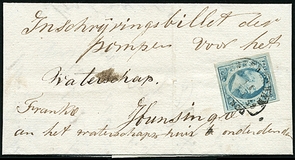 Inschrijvingsbillet der
pompen voor het
Waterschap.
Franko Hunsingo
aan het waterschaps huis te onderdendam